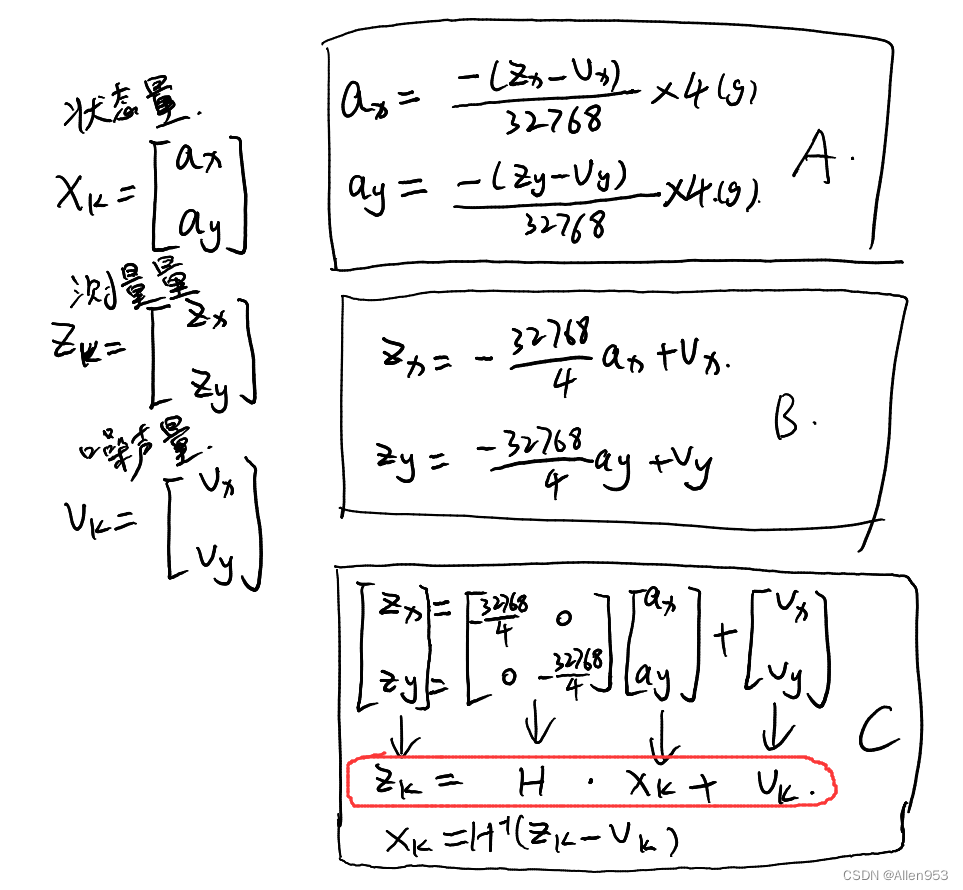 状态量.
X_k = [ a_x
a_y ]
测量量
Z_k = [ z_x
z_y ]
噪声量.
V_k = [ v_x
v_y ]
a_x = -(z_x - v_x) / 32768 × 4(g)
a_y = -(z_y - v_y) / 32768 × 4.(g).
A.
z_x = - 32768/4 a_x + v_x.
z_y = -32768/4 a_y + v_y
B.
[ z_x = [ -32768/4 0 ] [ a_x ] + [ v_x ]
z_y ] = [ 0 -32768/4 ] [ a_y ] [ v_y ]
↓ ↓ ↓ ↓
C
z_k = H · x_k + v_k.
x_k = H⁻¹(z_k - v_k)
CSDN @Allen953